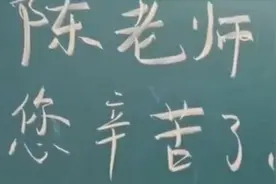 陈老师
您辛苦了.